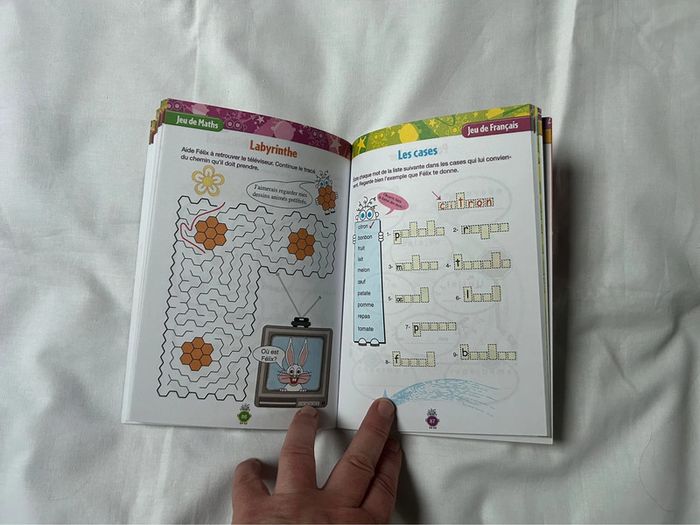 Jeu de Maths
Labyrinthe
Aide Félix à retrouver le téléviseur. Continue le tracé
du chemin qu'il doit prendre.
J'aimerais regarder mes
dessins animés préférés.
Où est
Félix?
86
Jeu de Français
Les cases
chaque mot de la liste suivante dans les cases qui lui convien-
ent. Regarde bien l'exemple que Félix te donne.
citron
citron
bonbon
fruit
lait
melon
œuf
patate
pomme
repas
tomate
1- p
2- r
3- m
4- t
5- œ
6- l
7- p
8- f
9- b
87